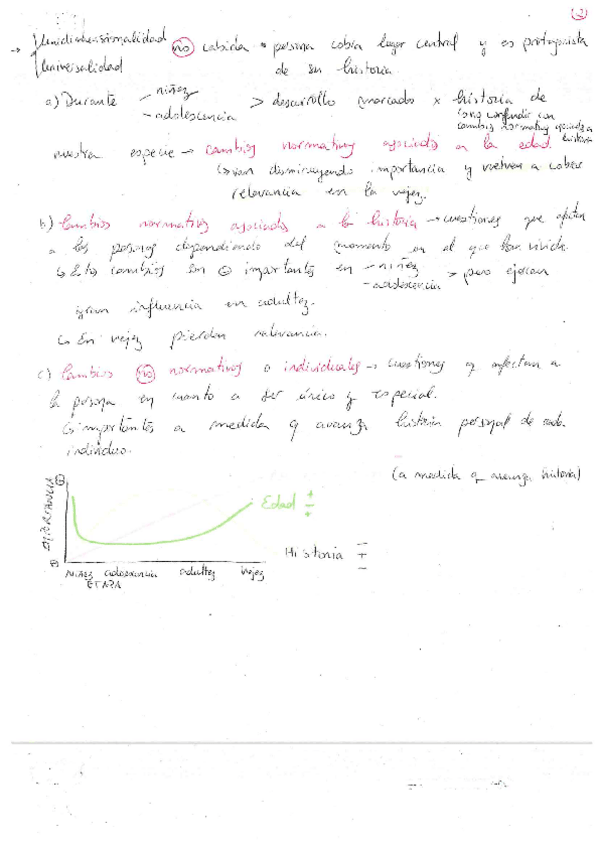 (2)
→ Unidimensionalidad
Universalidad
no cabida • persona cobra lugar central y es protagonista
de su historia
a) Durante - niñez
- adolescencia
> desarrollo marcado x historia de
(no confundir con
cambios normativos asociados a
historia
nuestra especie → cambios normativos asociados a la edad.
↳ van disminuyendo importancia y vuelven a cobrar
relevancia en la vejez.
b) Cambios normativos asociados a la historia → cuestiones que afectan
a las personas dependiendo del momento en el que han vivido.
↳ Estos cambios son ⊖ importantes en - niñez
- adolescencia
> pero ejercen
gran influencia en adultez.
↳ En vejez pierden relevancia.
c) Cambios no normativos o individuales → cuestiones q afectan a
la persona en cuanto a ser único y especial.
↳ importantes a medida q avanza historia personal de cada
individuo.
(a medida q avanza historia)
⊕
IMPORTANCIA
⊖
Edad + - +
Historia - + -
Niñez adolescencia adultez vejez
ETAPA